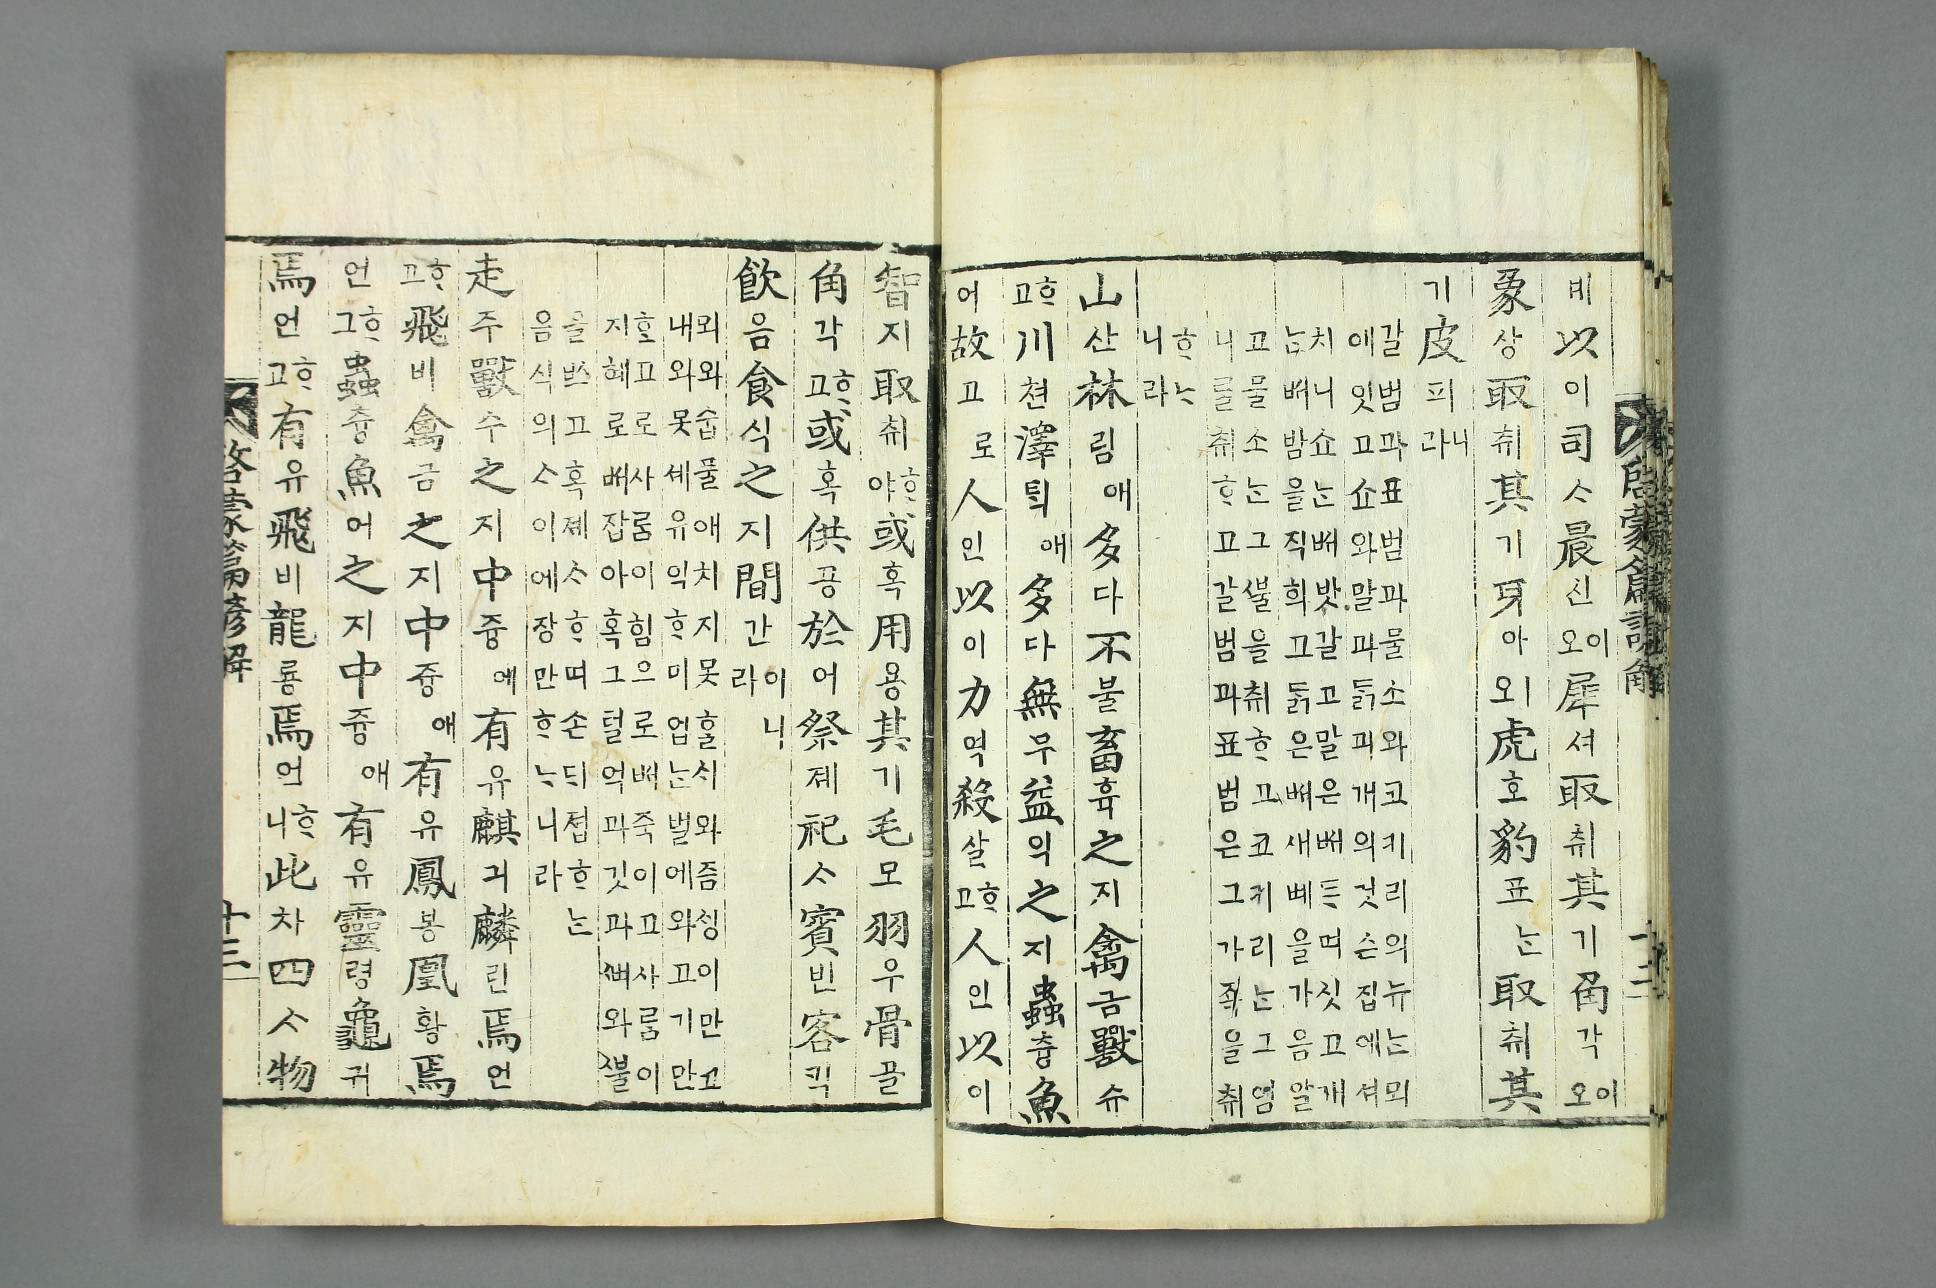 啓蒙篇諺解 十二
비以이司ᄉᆞ晨신이오犀셔取취其기角각이오
象상取취其기牙아ㅣ오虎호豹표ᄂᆞᆫ取취其기
기皮피니라
갈범과표범과물소와코키리의뉴ᄂᆞᆫ뫼
에잇고쇼와말과ᄃᆞᆰ과개의것슨집에셔
치니쇼ᄂᆞᆫᄡᅥ밧갈고말은ᄡᅥᄐᆞ며싯고개
ᄂᆞᆫᄡᅥ밤을직희그ᄃᆞᆰ은ᄡᅥ새베을가음알
고물소ᄂᆞᆫ그ᄲᅳᆯ을취ᄒᆞ고코귀리ᄂᆞᆫ그염
니를취ᄒᆞ고갈범과표범은그가족을취
ᄒᆞᄂᆞ
니라
山산林림애多다不불畜휵之지禽금獸슈
ᄒᆞ고川쳔澤ᄐᆡᆨ애多다無무益익之지蟲츙魚
어故고로人인以이力역殺살ᄒᆞ고人인以이
智지取취ᄒᆞ야或혹用용其기毛모羽우骨골
角각ᄒᆞ고或혹供공於어祭졔祀ᄉᆞ賓빈客ᄀᆡᆨ
飮음食식之지間간이니라
뫼와숩풀애치지못ᄒᆞᆯᄉᆡ와즘싱이만고
내와못셰유익ᄒᆞ미업ᄂᆞᆫ벌에와고기만
ᄒᆞ고로사ᄅᆞᆷ이힘으로ᄡᅥ죽이고사ᄅᆞᆷ이
지혜로ᄡᅥ잡아혹그털억과깃과ᄲᅧ와ᄲᅳᆯ
을ᄡᅳ고혹졔ᄉᆞᄒᆞ며손ᄃᆡ졉ᄒᆞᄂᆞᆫ
음식의ᄉᆞ이에장만ᄒᆞᄂᆞ니라
走주獸수之지中즁에有유麒긔麟린焉언
ᄒᆞ고飛비禽금之지中즁애有유鳳봉凰황焉
언ᄒᆞ고蟲츙魚어之지中즁애有유靈령龜귀
焉언ᄒᆞ고有유飛비龍룡焉언ᄒᆞ니此차四ᄉᆞ物
啓蒙篇諺解 十三